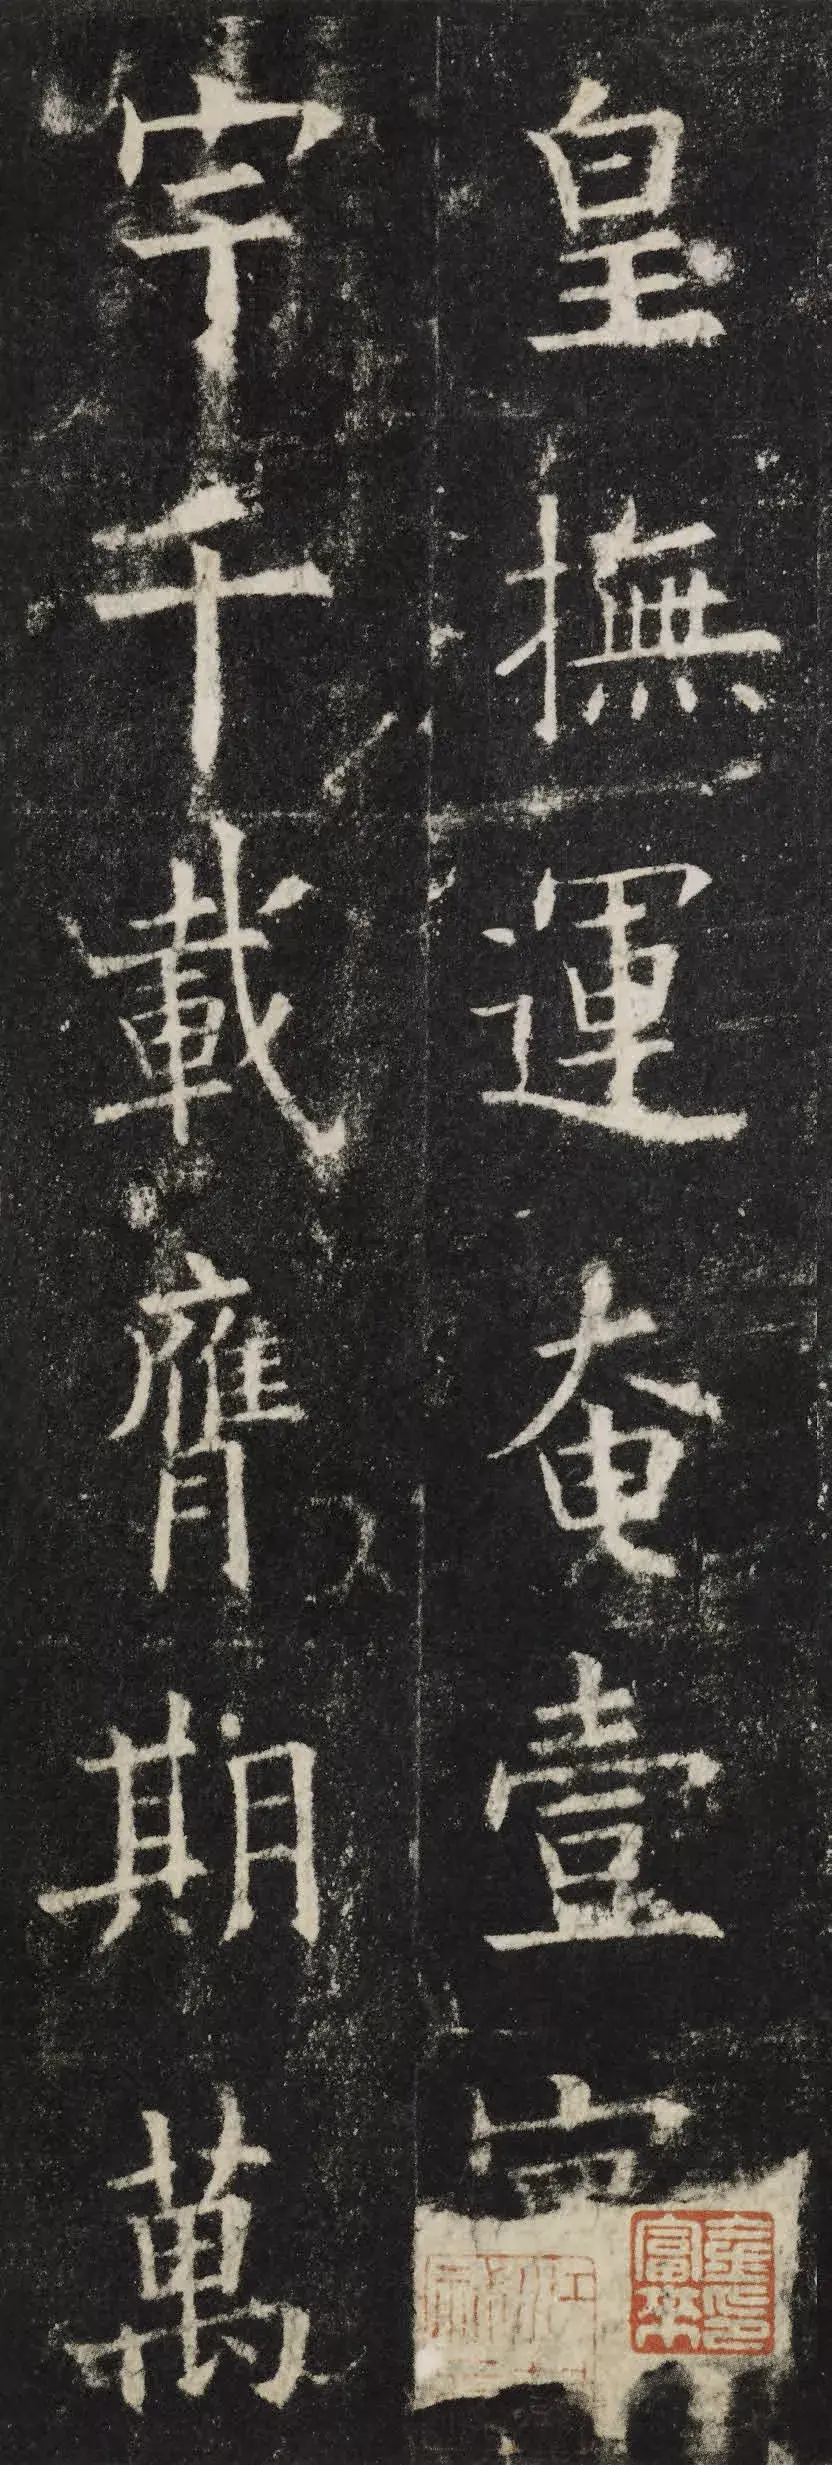 皇撫運奄壹
宇千載膺期萬